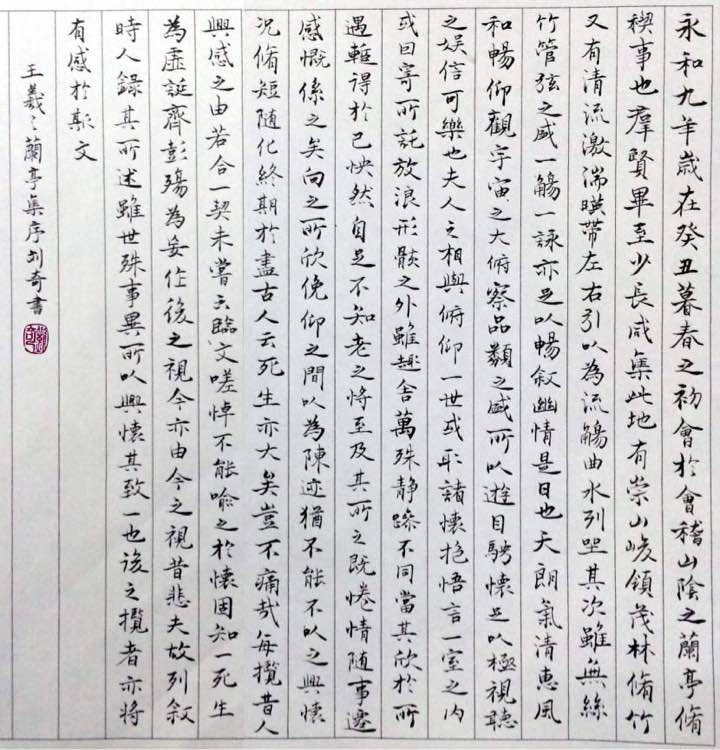 永和九年歲在癸丑暮春之初會於會稽山陰之蘭亭脩
稧事也羣賢畢至少長咸集此地有崇山峻領茂林脩竹
又有清流激湍暎帶左右引以為流觴曲水列坐其次雖無絲
竹管弦之盛一觴一詠亦足以暢叙幽情是日也天朗氣清惠風
和暢仰觀宇宙之大俯察品類之盛所以遊目騁懷足以極視聽
之娛信可樂也夫人之相與俯仰一世或取諸懷抱悟言一室之內
或因寄所託放浪形骸之外雖趣舍萬殊静躁不同當其欣於所
遇輒得於己怏然自足不知老之將至及其所之既惓情隨事遷
感慨係之矣向之所欣俛仰之間以為陳迹猶不能不以之興懷
況脩短隨化終期於盡古人云死生亦大矣豈不痛哉每攬昔人
興感之由若合一契未嘗不臨文嗟悼不能喻之於懷固知一死生
為虛誕齊彭殤為妄作後之視今亦由今之視昔悲夫故列叙
時人錄其所述雖世殊事異所以興懷其致一也後之攬者亦將
有感於斯文
王羲之蘭亭集序刘奇書